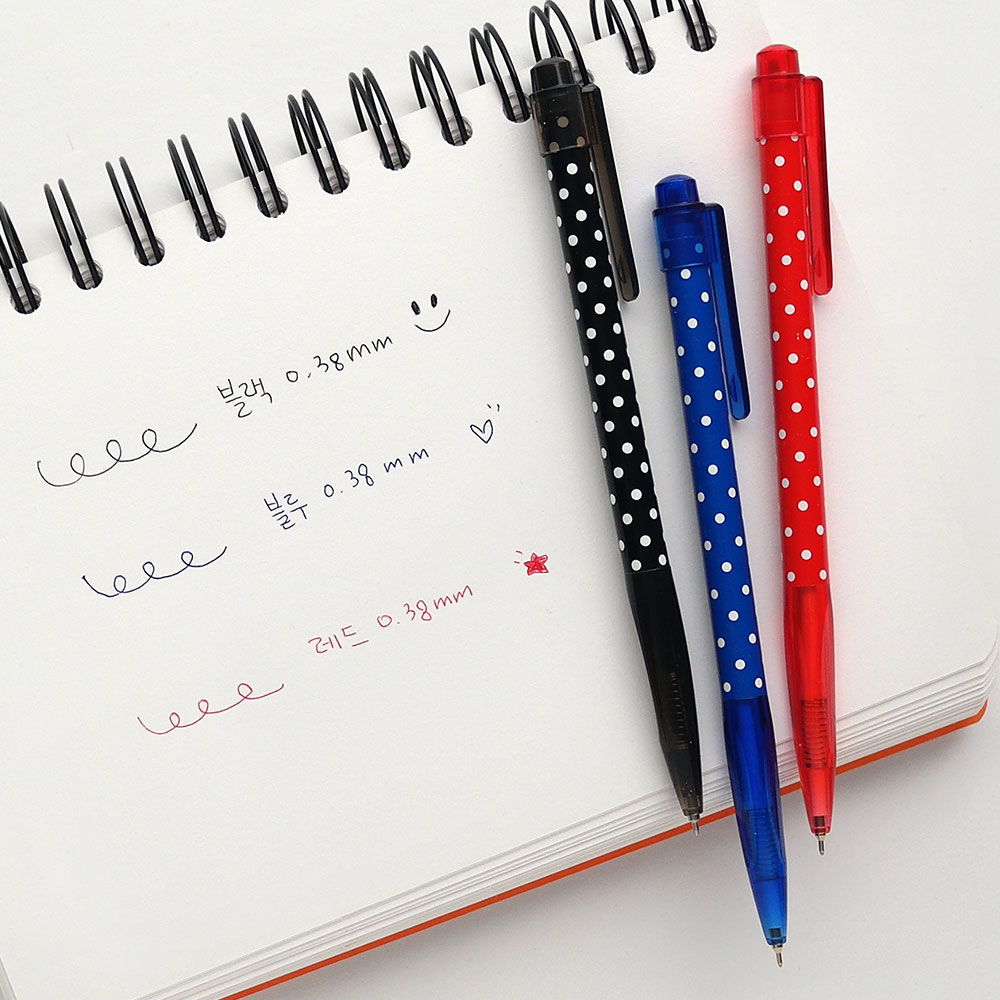 블랙 0.38mm
블루 0.38mm
레드 0.38mm